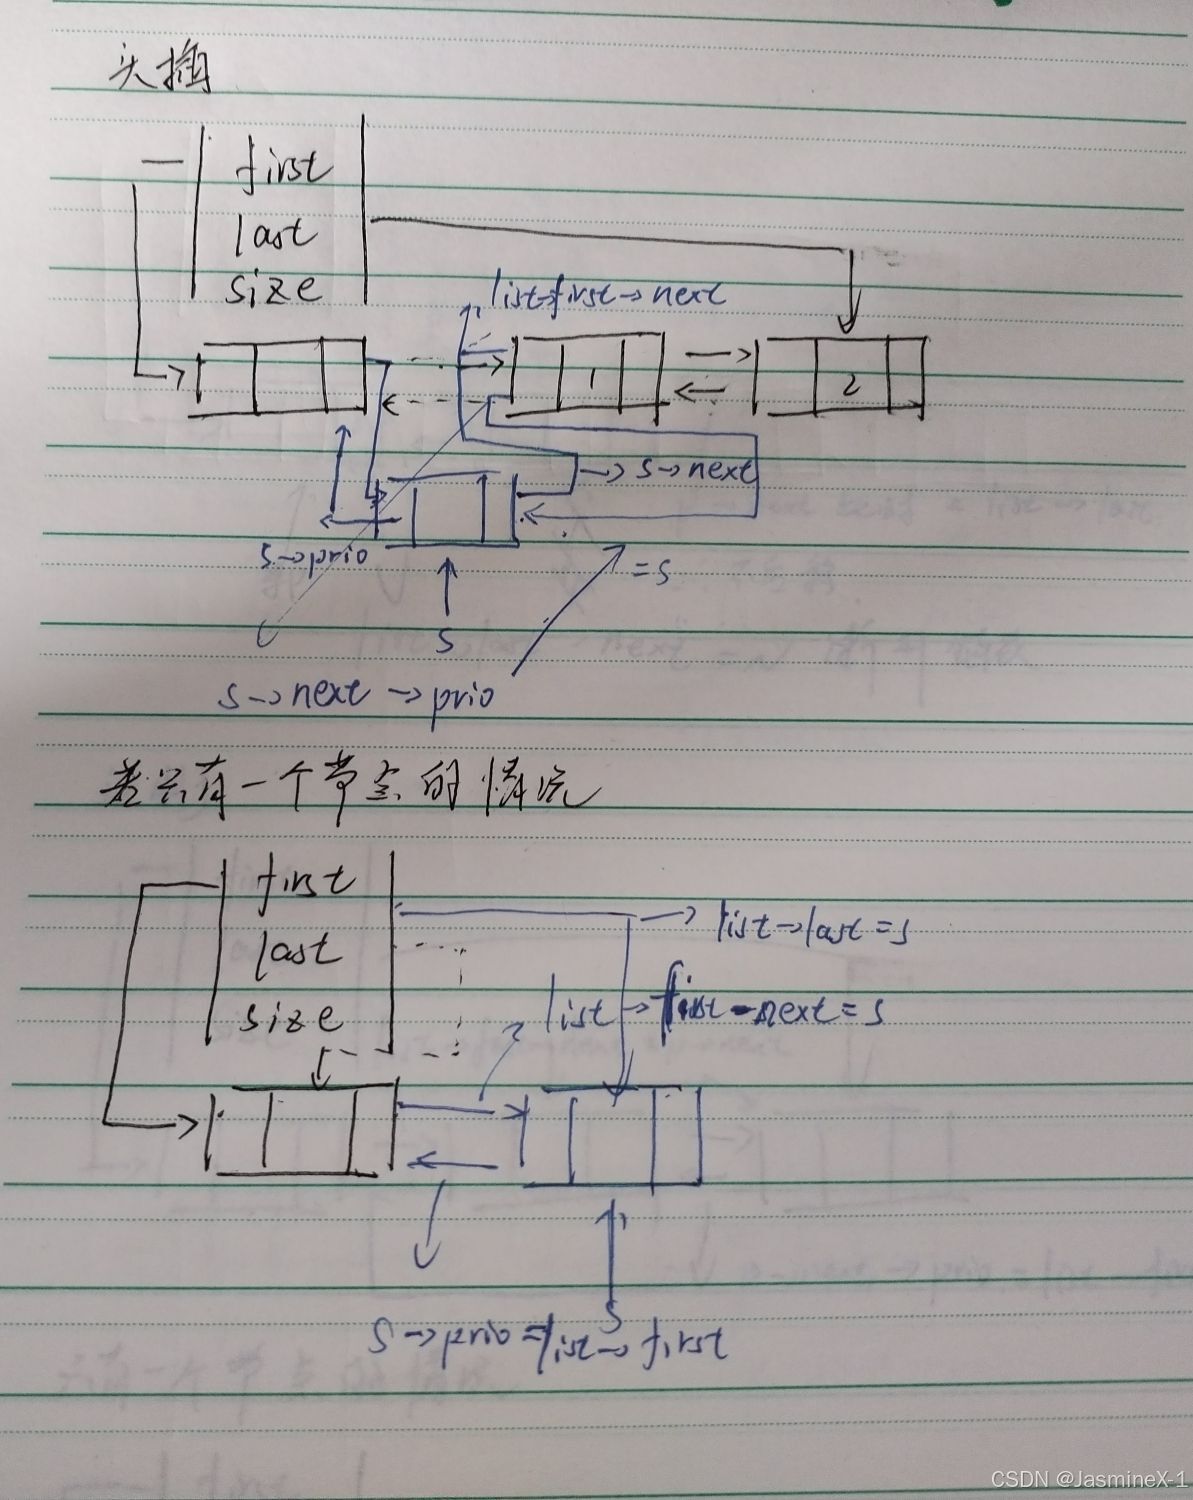 头插
first
last
size
list→first→next
1
2
s→next
s→prio
=s
s
s→next→prio
若只有一个节点的情况
first
last
size
list→last=s
list→first→next=s
s
s→prio=list→first
CSDN @JasmineX-1